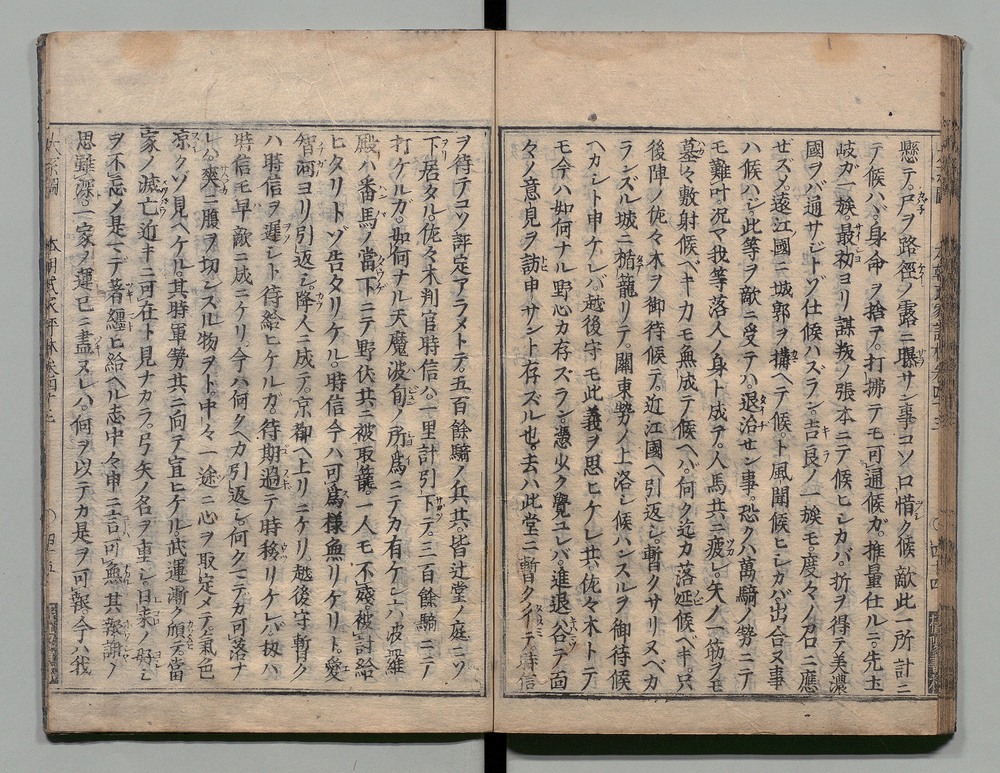 懸テ。尸ヲ路徑ノ露ニ曝サン事コソ口惜ク候敵此一所計ニ
テ候ハバ。身命ヲ捨テ。打拂テモ可通候ガ。推量仕ルニ。先土
岐ガ一族。最初ヨリ謀叛ノ張本ニテ候ヒシカバ。折ヲ得テ美濃
國ヲバ通サジトゾ仕候ハズラン。吉良ノ一族モ。度々ノ召ニ應
ゼズメ。遠江國ニ城郭ヲ構ヘテ候ト風聞候ヒシカバ出合ヌ事
ハ候ハジ。此等ヲ敵ニ受テハ。退治セン事。恐クハ萬騎ノ勢ニテ
モ難叶。况マ我等落人ノ身ト成テ。人馬共ニ疲レ。矢ノ一筋ヲモ
墓々敷射候ベキカモ無成テ候ヘバ。何ク迄カ落延候ベキ。只
後陣ノ佐々木ヲ御待候テ。近江國ヘ引返シ。暫クサリヌベカ
ランズル城ニ楯籠リテ。關東勢ノ上洛シ候ハンスルヲ御待候
ヘカシト申ケレバ。越後守モ此義ヲ思ヒケレ共。佐々木トテ
モ今ハ如何ナル野心カ存ズラン。憑少ク覺ユレバ。進退谷テ面
々ノ意見ヲ訪申サント存ズル也。去ハ此堂ニ暫クイテ。時信
ヲ待テコソ評定アラメトテ。五百餘騎ノ兵共。皆辻堂ノ庭ニソ
下居タル。佐々木判官時信ハ。一里計引下テ。三百餘騎ニテ
打ケルガ。如何ナル天魔波旬ノ所爲ニテカ有ケン。六波羅
殿ハ番馬ノ當下ニテ野伏共ニ被取籠。一人モ不殘。被討給
ヒタリトゾ告タリケル。時信今ハ可爲樣無リケリト。愛
智河ヨリ引返シ。降人ニ成テ。京都ヘ上リニケリ。越後守暫ク
ハ時信ヲ遲シト待給ヒケルガ。待期過テ時移リケレバ。扨ハ
時信モ早敵ニ成ニケリ。今ハ何クヘカ引返シ。何クマデカ可落ナ
レバ。爽ニ腹ヲ切ンスル物ヲト。中々一途ニ心ヲ取定メテ。氣色
凉クゾ見ヘケル。其時軍勢共ニ向テ宣ヒケル。武運漸ク傾テ當
家ノ滅亡近キニ可在ト見ナカラ。弓矢ノ名ヲ重シ。日來ノ好
ヲ不忘メ是マデ著纏ヒ給ヘル志中々申ニ言可無其報謝ノ
思雖深。一家ノ運已ニ盡ヌレハ。何ヲ以テカ是ヲ可報今ハ我